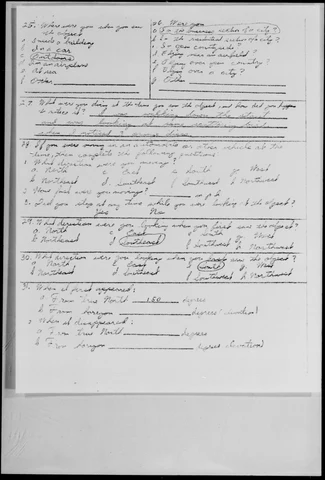 25. Where were you when you saw the object?
a Inside a building
b In a car
c Outdoors
d In an airplane
e At sea
f Other
26. Were you
a In the business section of a city?
b In the residential section of a city?
c In open countryside?
d Flying near an airfield?
e Flying over a city?
f Flying over open country?
g Other
27. What were you doing at the time you saw the object, and how did you happen to notice it? I was walking down the street
and was looking at some
when I noticed
28. If you were moving in an automobile or other vehicle at the
time, then complete the following questions:
1. What direction were you moving?
a. North c East e South g West
b Northeast d Southeast f Southwest h Northwest
2. How fast were you moving? m.p.h.
3. Did you stop at any time while you were looking at the object?
Yes No
29. What direction were you looking when you first saw the object?
a. North c East e South g West
b Northeast d Southeast f Southwest h Northwest
30. What direction were you looking when you last saw the object?
a North c East e South g West
b Northeast d Southeast f Southwest h Northwest
31. When it first appeared:
a From true North 150 degrees
b From horizon degrees (elevation)
When it disappeared:
a From true North degrees
b From horizon degrees (elevation)